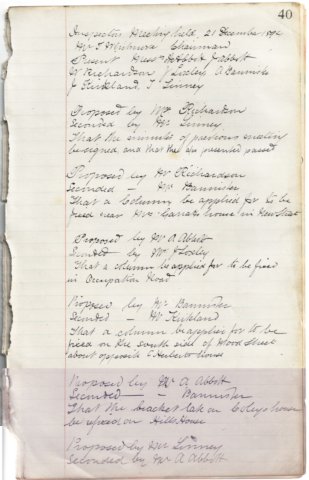 40
Inspectors Meeting held, 21 December
Mr T Chairman
Present Messrs Abbott J Abbott
W Richardson J Loxley A Bannister
J Kirkland, T Linney
Proposed by Mr Richardson
Seconded by Mr Linney
That the minutes of previous meeting
be signed, and that the presented passed
Proposed by Mr Richardson
Seconded — Mr Bannister
That a Column be applied for to be
fixed near Mrs house in New Street
Proposed by Mr A. Abbott
Seconded by Mr J Loxley
That a column be applied for to be fixed
in Occupation Road
Proposed by Mr Bannister
Seconded — Mr Kirkland
That a column be applied for to be
fixed on the south side of Wood Street
about opposite Herberts House
Proposed by Mr A Abbott
Seconded — Bannister
That the bracket late on Coleys house
be refixed on Hills House
Proposed by Mr Linney
Seconded by Mr A Abbott